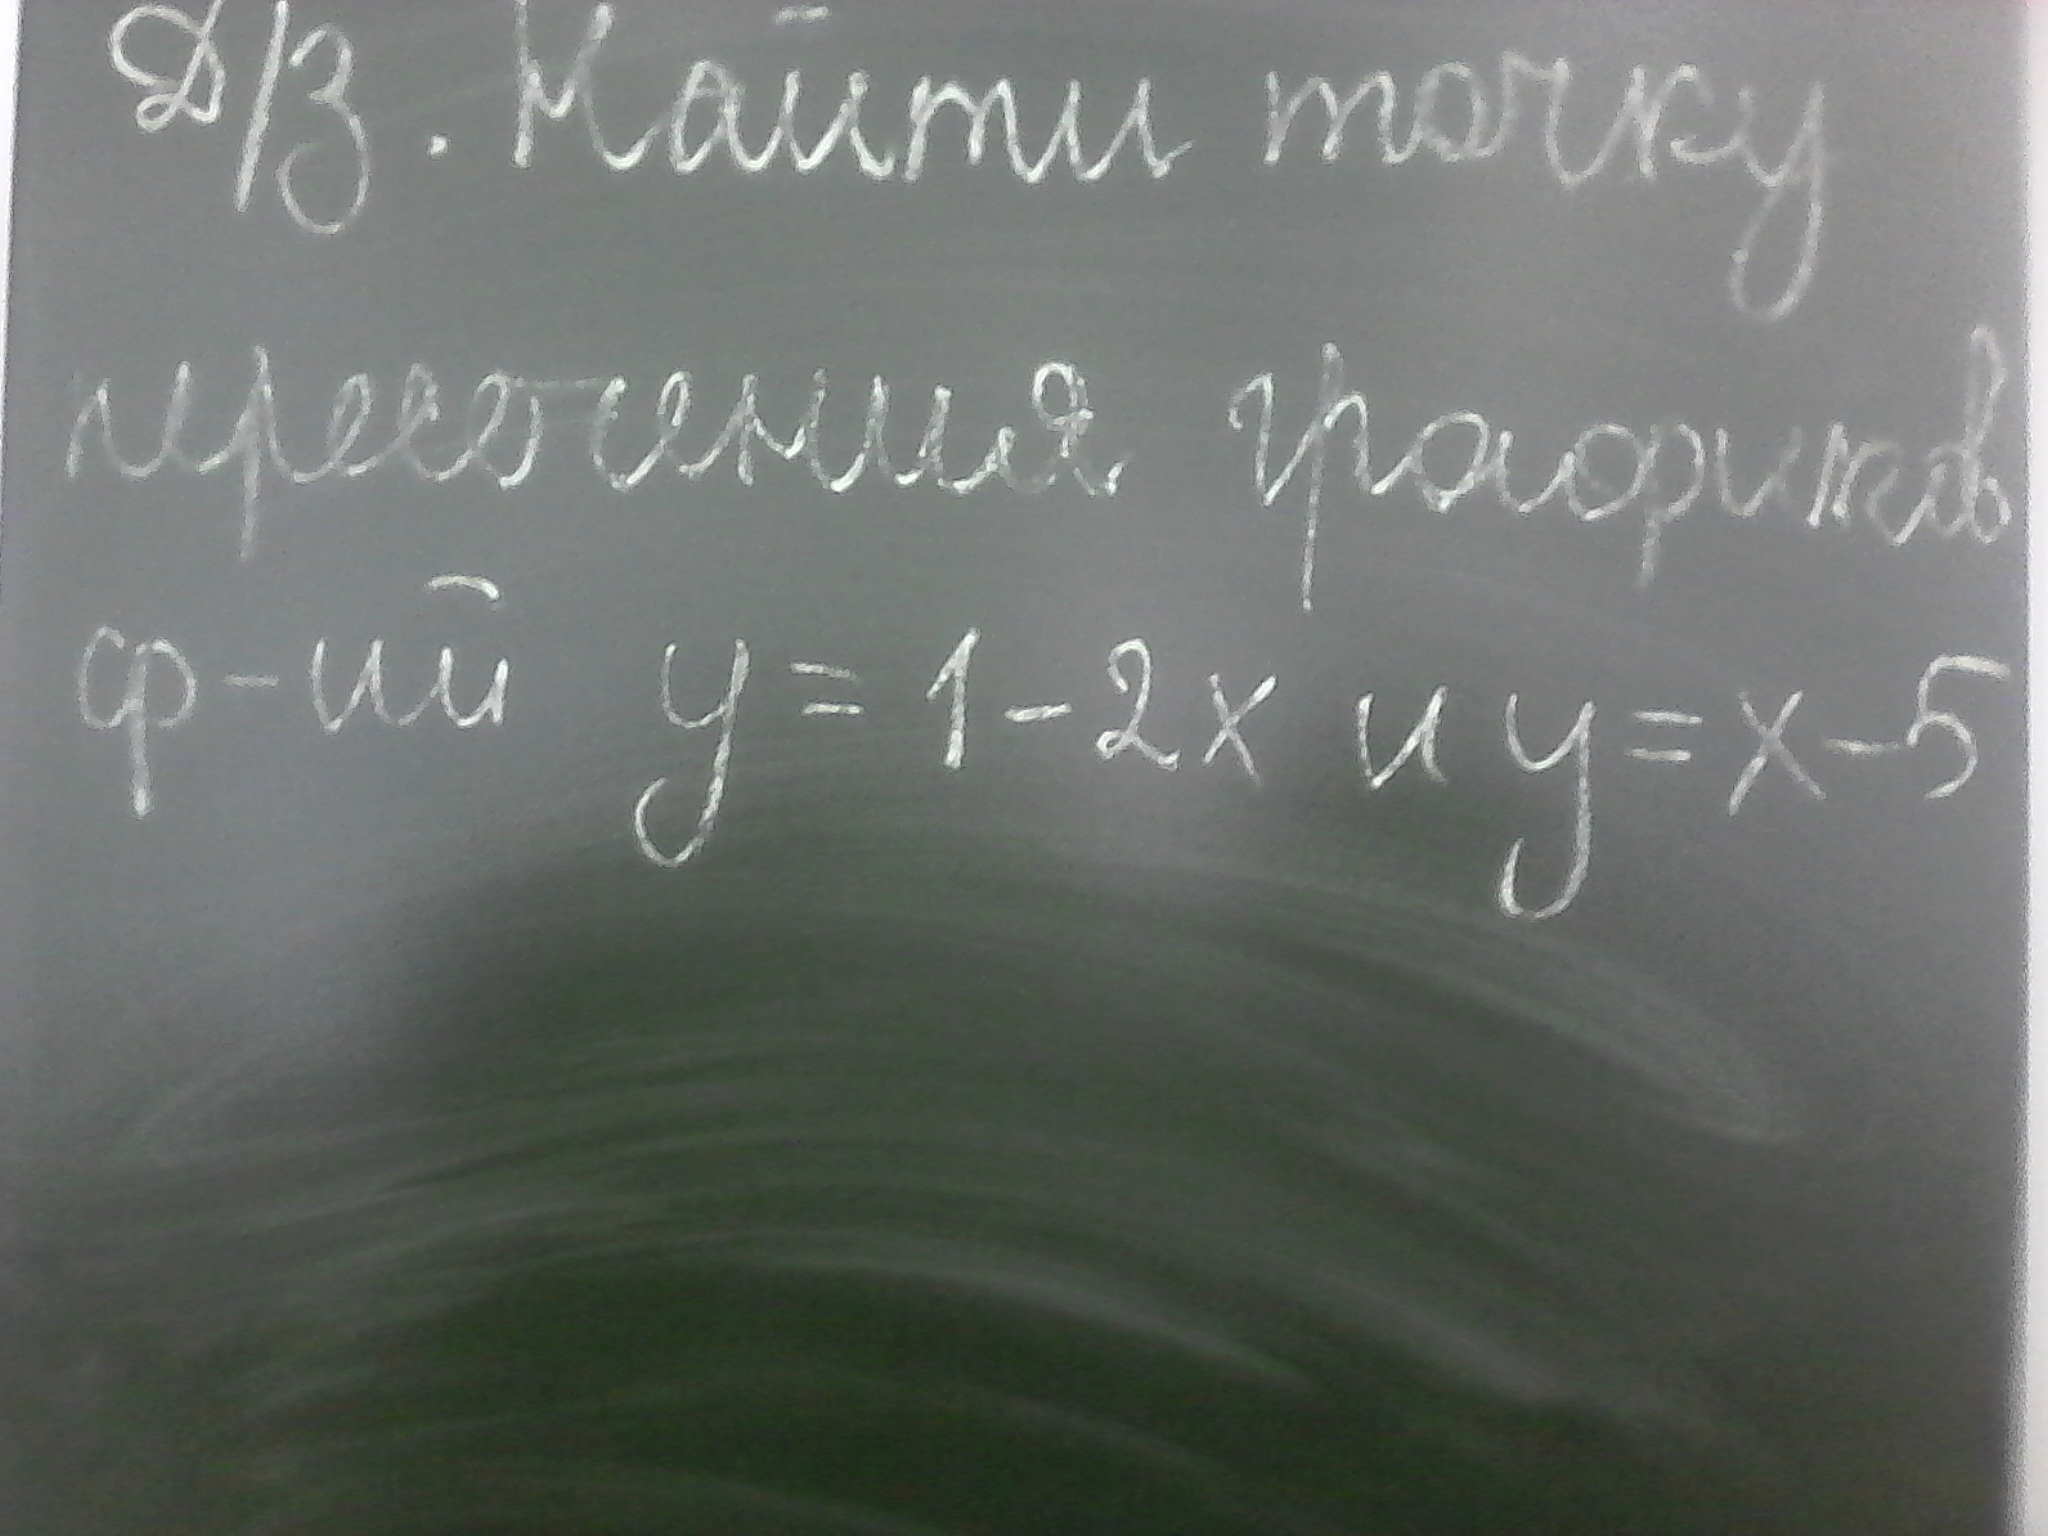 Д/З. Найти точку
пресечения графиков
ф-ий y = 1 - 2x и y = x - 5